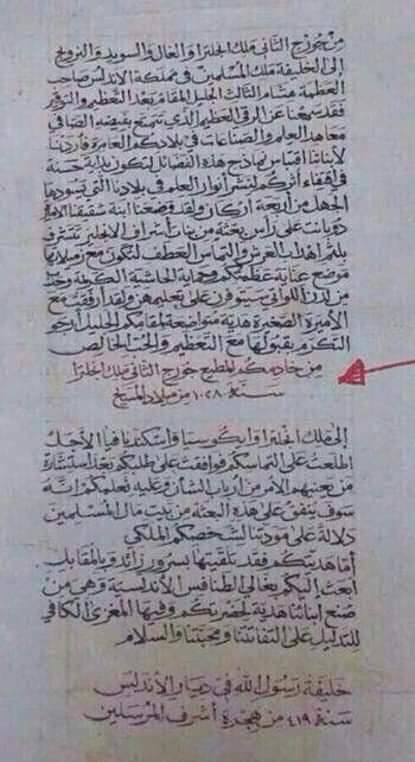 من جورج الثاني ملك انجلترا والغال والسويد والنرويج
إلى الخليفة ملك المسلمين في مملكة الأندلس صاحب
العظمة هشام الثالث الجليل المقام بعد التعظيم والتوقير
فقد سمعنا عن الرقي العظيم الذي تتمتع بفيضه الضافي
معاهد العلم والصناعات في بلادكم العامرة فأردنا
لأبنائنا اقتباس نماذج هذه الفضائل لتكون بداية حسنة
في اقتفاء أثركم لنشر أنوار العلم في بلادنا التي يسودها
الجهل من أربعة أركان ولقد وضعنا ابنة شقيقنا الأميرة
دوبانت على رأس بعثة من بنات أشراف الانجليز تتشرف
بلثم أهداب العرش والتماس العطف لتكون مع زميلاتها
موضع عناية عظمتكم وحماية الحاشية الكريمة وحدب
من لدن اللواتي سيتوفرن على تعليمهن ولقد أرفقت مع
الأميرة الصغيرة هدية متواضعة لمقامكم الجليل أرجو
التكرم بقبولها مع التعظيم والحب الخالص
من خادمكم المطيع جورج الثاني ملك انجلترا
سنة ١٠٢٨ من ميلاد المسيح
إلى ملك انجلترا وايكوسيا واسكندنافيا الأجل
اطلعت على التماسكم فوافقت على طلبكم بعد استشارة
من يعنيهم الأمر من أرباب الشأن وعليه نعلمكم أنه
سوف ينفق على هذه البعثة من بيت مال المسلمين
دلالة على مودتنا لشخصكم الملكي
أما هديتكم فقد تلقيتها بسرور زائد وبالمقابل
أبعث إليكم بغالي الطنافس الأندلسية وهي من
صنع أبنائنا هدية لحضرتكم وفيها المغزى الكافي
للتدليل على التفاتتنا ومحبتنا والسلام
خليفة رسول الله في ديار الأندلس
سنة ٤١٩ من هجرة أشرف المرسلين